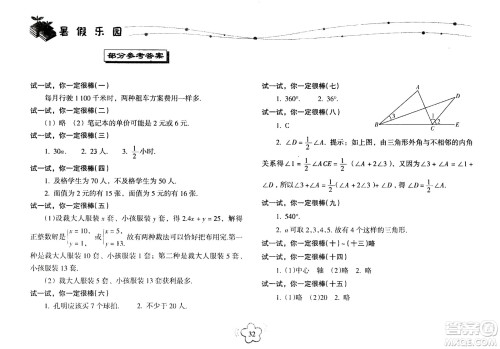 暑假乐园
部分参考答案
试一试,你一定很棒(一)
每月行驶1 100千米时,两种租车方案费用相同.
试一试,你一定很棒(二)
(1)(略) (2)笔记本的单价可能是2元或6元.
试一试,你一定很棒(三)
1. 30a. 2. 23人. 3. 1/2小时.
试一试,你一定很棒(四)
1. 及格学生为70人,不及格学生为50人.
2. 面值为2元的有15张,面值为5元的有16张.
试一试,你一定很棒(五)
(1)设裁大人服装x套,小孩服装y套.根据题意,得2.4x+y=25,
正整数解是{x=10, y=1, 或{x=5, y=13, 故有两种裁法可以恰好把布用完.第一种
是裁大人服装10套、小孩服装1套;第二种是裁大人服装5套,
小孩服装13套. (2)小孩服装13套获利最多.
试一试,你一定很棒(六)
1. 孔明应该买7个球拍. 2. 不少于20m.
试一试,你一定很棒(七)
1. 360°. 2. (略)
试一试,你一定很棒(八)
1. C
2. ∠D=1/2∠A. 提示:如图,由三角形外角与不相邻的内角
关系得∠1=1/2∠ACE=1/2(∠A+2∠3),又∠3+∠A=∠1+
∠D,所以∠3+∠A=1/2(∠A+2∠3)+∠D. 故∠D=1/2∠A.
A
D
B
C
E
试一试,你一定很棒(九)
1. 540°.
2. a可取2,3,4,5. 可以构成4个不同的三角形.
试一试,你一定很棒(十)~(十三)略
试一试,你一定很棒(十四)
1. (1)中心 轴 (2)略 2. 略.
试一试,你一定很棒(十五)
(1)略. (2)略. (3)略.
32